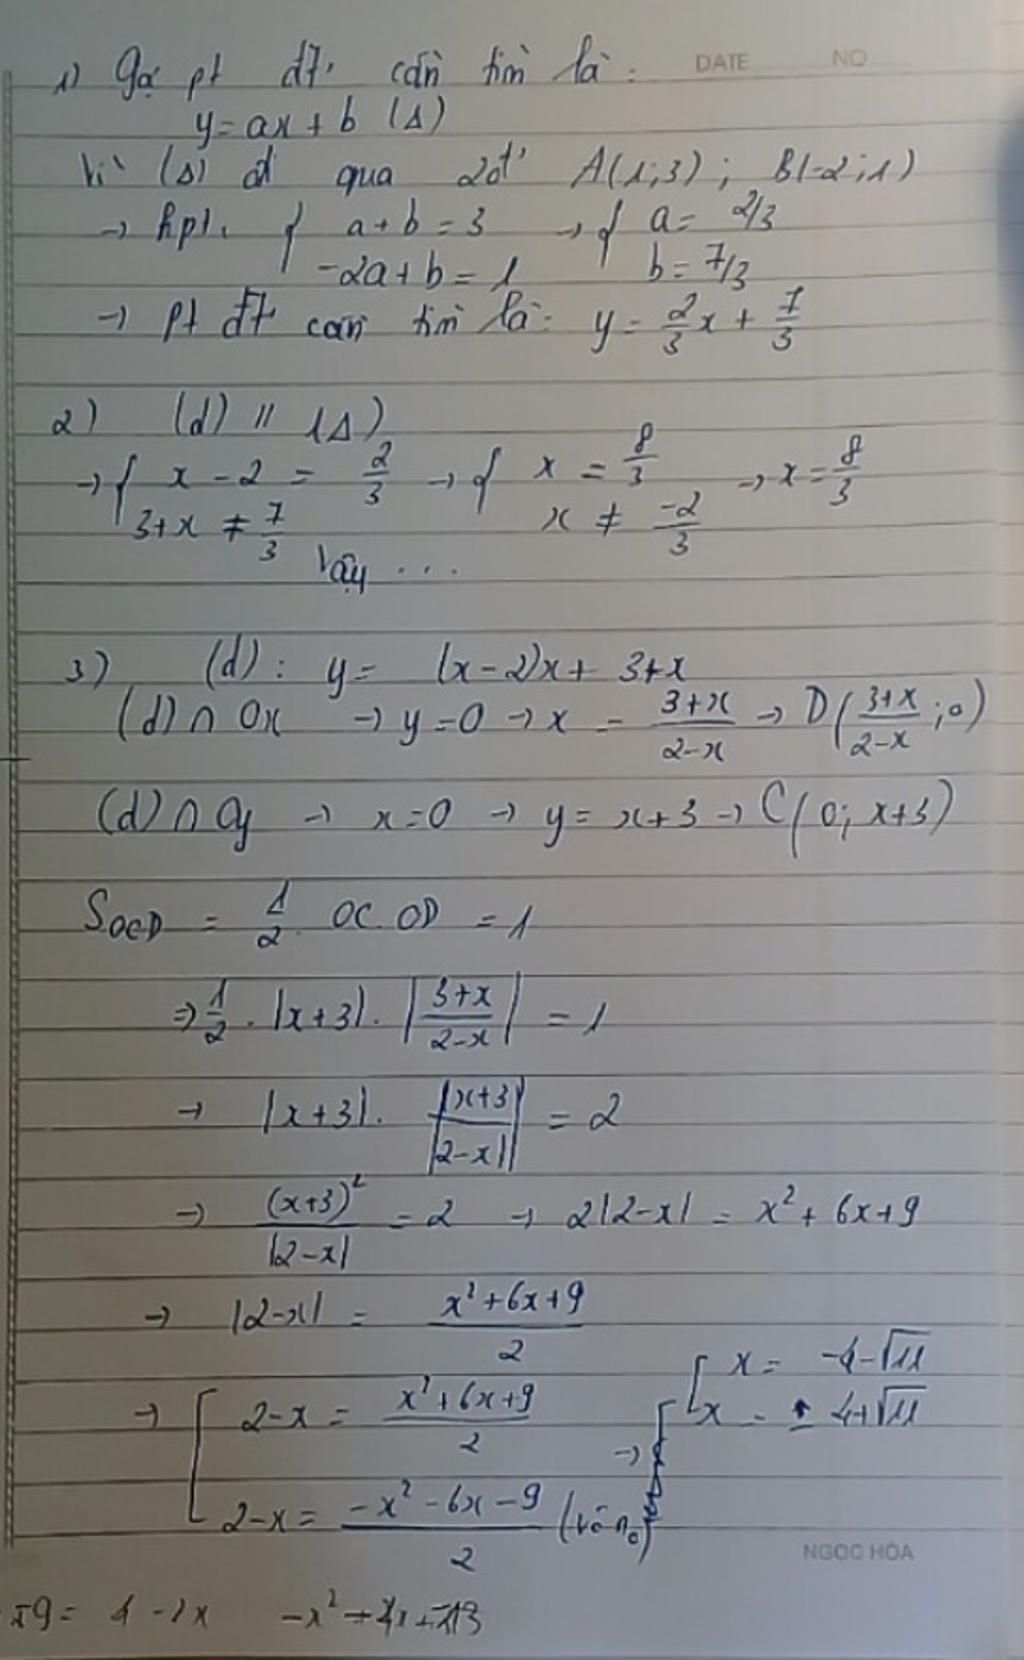 DATE NO
1) Gọi pt đt cần tìm là:
y = ax + b (Δ)
Vì (Δ) đi qua 2đ' A(1;3); B(-2;1)
→ hpt. { a+b = 3 → { a = 2/3
-2a+b = 1 b = 7/3
→ pt đt cần tìm là: y = 2/3 x + 7/3
2) (d) // (Δ)
→ { x - 2 = 2/3 → { x = 8/3 → x = 8/3
3+x ≠ 7/3 x ≠ -2/3
Vậy ...
3) (d): y = (x-2)x + 3+x
(d) ∩ Ox → y=0 → x = (3+x)/(2-x) → D((3+x)/(2-x); 0)
(d) ∩ Oy → x=0 → y = x+3 → C(0; x+3)
S_OCD = 1/2 . OC.OD = 1
⇒ 1/2 . |x+3| . |(3+x)/(2-x)| = 1
→ |x+3| . |x+3|/|2-x| = 2
→ (x+3)²/|2-x| = 2 → 2|2-x| = x² + 6x+9
→ |2-x| = (x²+6x+9)/2
→ [ 2-x = (x²+6x+9)/2 → [ x = -4-√11
2-x = (-x²-6x-9)/2 (vô n₀) x = -4+√11
NGOC HÒA